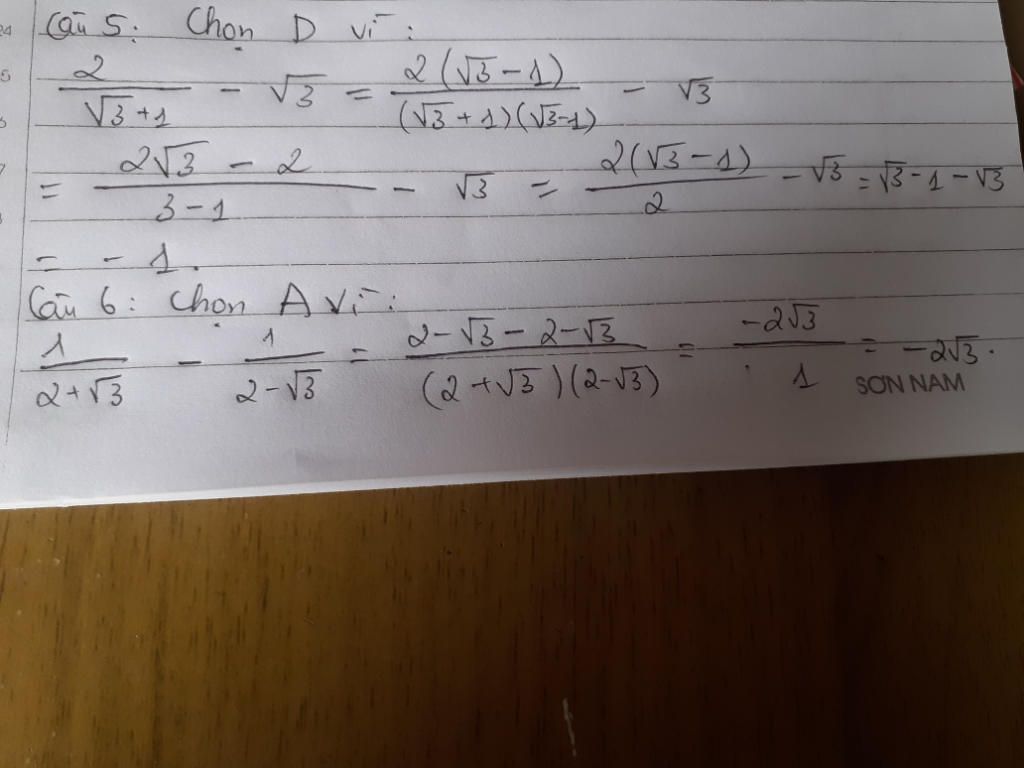 Câu 5: Chọn D vì:
2/(√3+1) - √3 = 2(√3-1)/((√3+1)(√3-1)) - √3
= (2√3 - 2)/(3-1) - √3 = 2(√3-1)/2 - √3 = √3-1-√3
= -1.
Câu 6: Chọn A vì:
1/(2+√3) - 1/(2-√3) = (2-√3-2-√3)/((2+√3)(2-√3)) = -2√3/1 = -2√3.
SƠN NAM